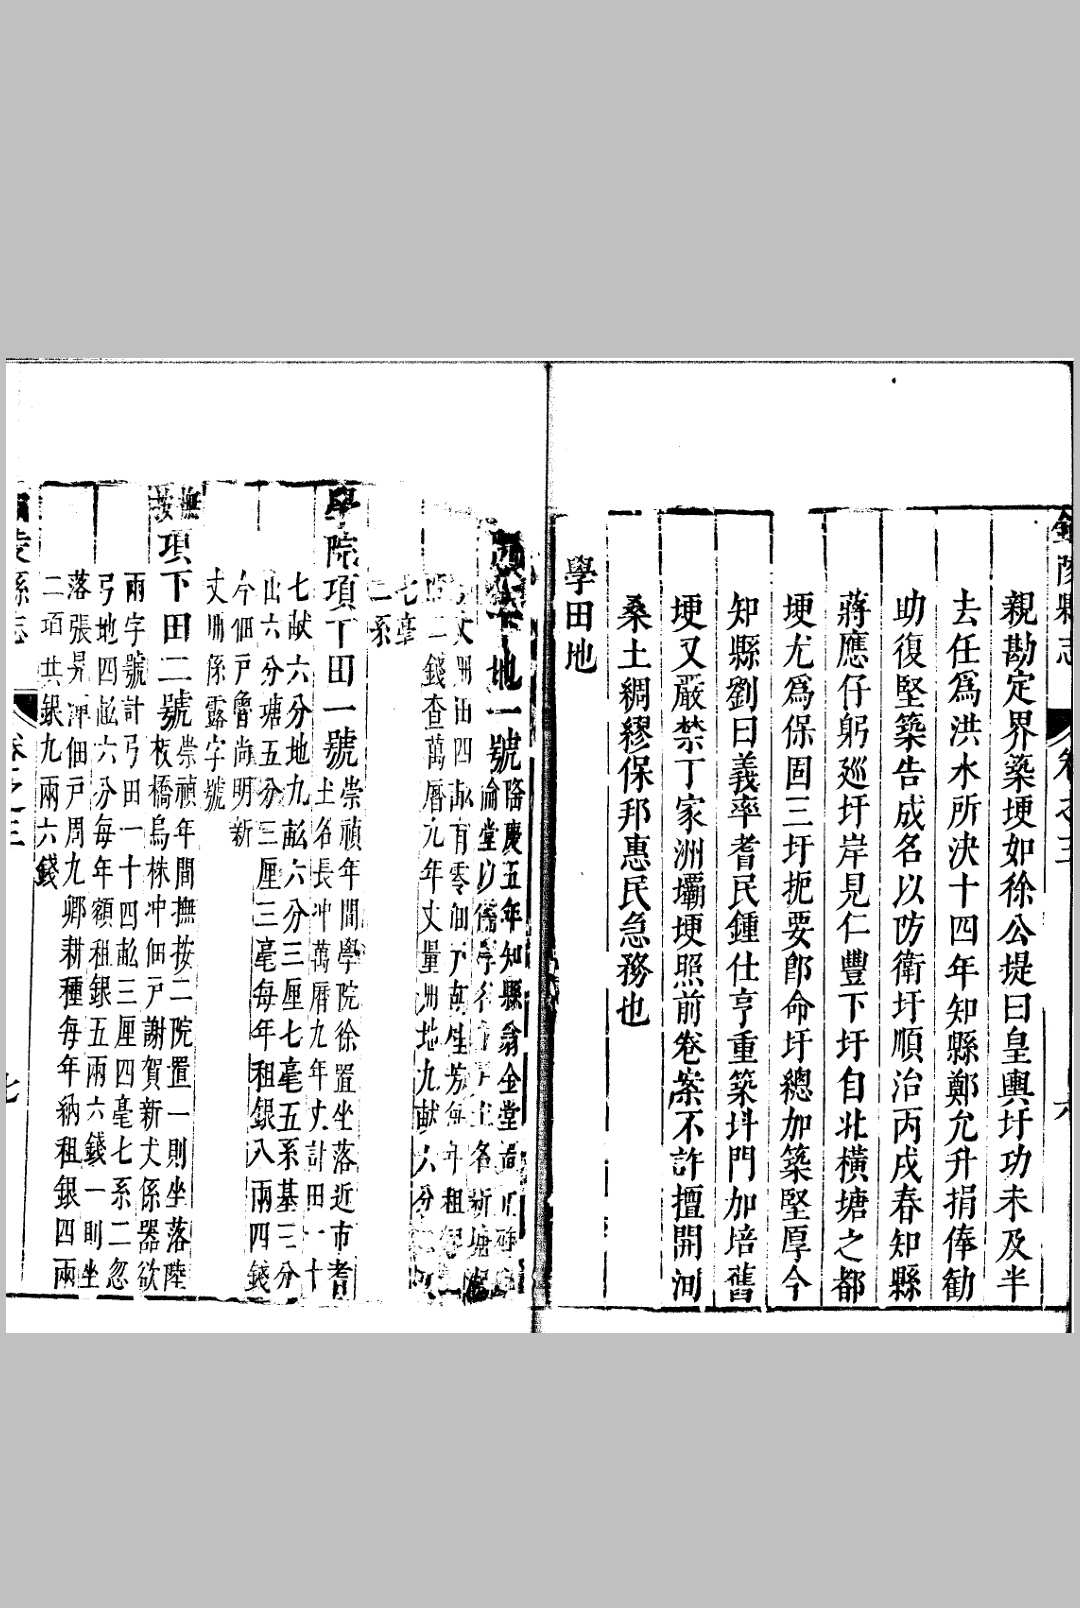 縣志
卷之三
六
親勘定界築埂如徐公堤曰皇輿圩功未及半
去任爲洪水所決十四年知縣鄭允升捐俸勸
助復堅築告成名以防衛圩順治丙戌春知縣
蔣應仔躬廵圩岸見仁豐下圩自北橫塘之都
埂尤爲保固三圩扼要卽命圩總加築堅厚今
知縣劉曰義率耆民鍾仕亨重築抖門加培舊
埂又嚴禁丁家洲壩埂照前卷案不許擅開河
桑土稠繆保邦惠民急務也
學田地
地一號
隆慶五年知縣翁金堂
論堂以
田四畝有零佃
年租
二錢查萬曆元年丈量洲地九畝八分
七毫
二系
學院項下田一號
崇禎年間學院徐置坐落近市耆
土名長冲萬曆九年丈計田一十
七畝六分地九畝六分三厘七毫五系基三分
山六分塘五分三厘三毫每年租銀八兩四錢
今佃戸魯尚明新
丈册係露字號
撫按項下田二號
崇禎年間撫按二院置一則坐落陸
板橋烏株冲佃戸謝賀新丈係器欲
兩字號計弓田一十四畝三厘四毫七系二忽
弓地四畝六分每年額租銀五兩六錢一則坐
落張昇冲佃戸周九卿耕種每年納租銀四兩
二項共銀九兩六錢
陵縣志
卷之三
七